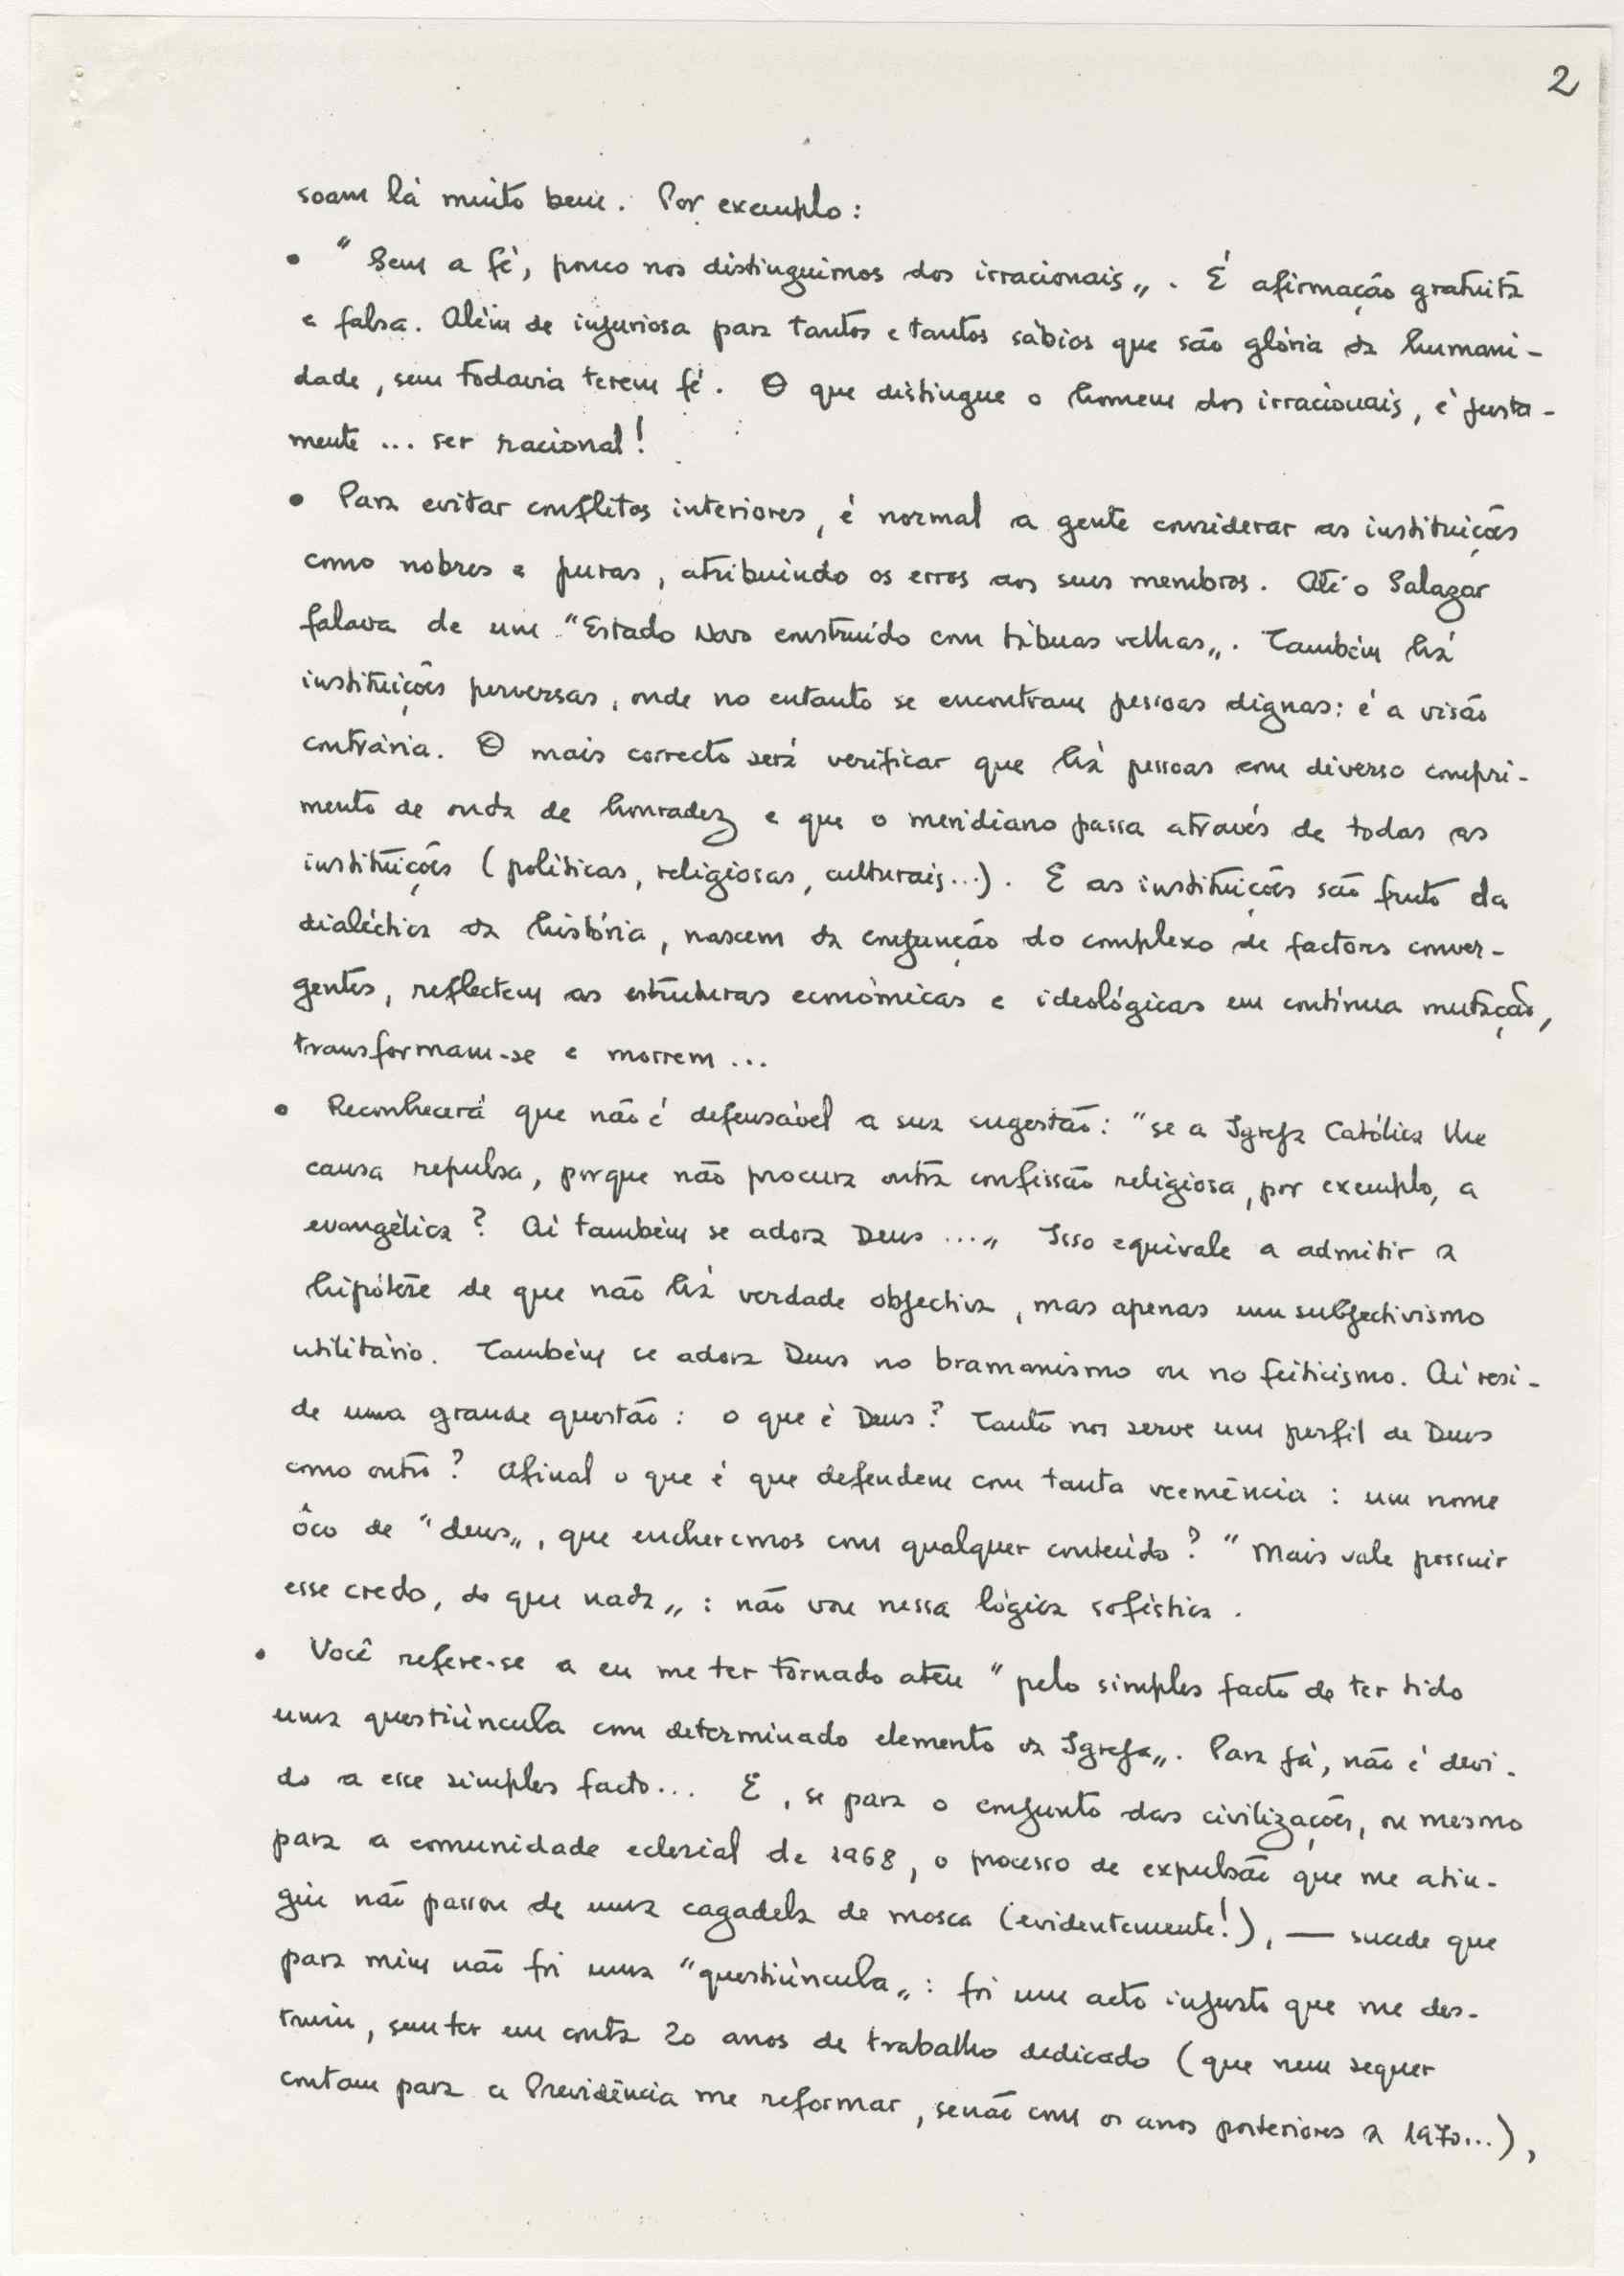 2
soam lá muito bem. Por exemplo:
• "Sem a fé, pouco nos distinguimos dos irracionais„. É afirmação gratuita
e falsa. Além de injuriosa para tantos e tantos sábios que são glória da humani-
dade, sem todavia terem fé. O que distingue o homem dos irracionais, é justa-
mente ... ser racional!
• Para evitar conflitos interiores, é normal a gente considerar as instituições
como nobres e puras, atribuindo os erros aos seus membros. Até o Salazar
falava de um "Estado Novo construído com tábuas velhas„. Também há
instituições perversas, onde no entanto se encontram pessoas dignas: é a visão
contrária. O mais correcto será verificar que há pessoas com diverso compri-
mento de onda de honradez e que o meridiano passa através de todas as
instituições (políticas, religiosas, culturais...). E as instituições são fruto da
dialéctica da história, nascem da conjunção do complexo de factores conver-
gentes, reflectem as estruturas económicas e ideológicas em contínua mutação,
transformam-se e morrem ...
• Reconhecerá que não é defensável a sua sugestão: "se a Igreja Católica lhe
causa repulsa, porque não procura outra confissão religiosa, por exemplo, a
evangélica? Aí também se adora Deus ...„ Isso equivale a admitir a
hipótese de que não há verdade objectiva, mas apenas um subjectivismo
utilitário. Também se adora Deus no bramanismo ou no feiticismo. Aí resi-
de uma grande questão: o que é Deus? Tanto nos serve um perfil de Deus
como outro? Afinal o que é que defendem com tanta veemência: um nome
ôco de "deus„, que encheremos com qualquer conteúdo? "Mais vale possuir
esse credo, do que nada„: não vou nessa lógica sofística.
• Você refere-se a eu me ter tornado ateu "pelo simples facto de ter tido
uma questiúncula com determinado elemento da Igreja„. Para já, não é devi-
do a esse simples facto... E, se para o conjunto das civilizações, ou mesmo
para a comunidade eclesial de 1968, o processo de expulsão que me atin-
giu não passou de uma cagadela de mosca (evidentemente!), — sucede que
para mim não foi uma "questiúncula„: foi um acto injusto que me des-
truiu, sem ter em conta 20 anos de trabalho dedicado (que nem sequer
contam para a Previdência me reformar, senão com os anos posteriores a 1970...),